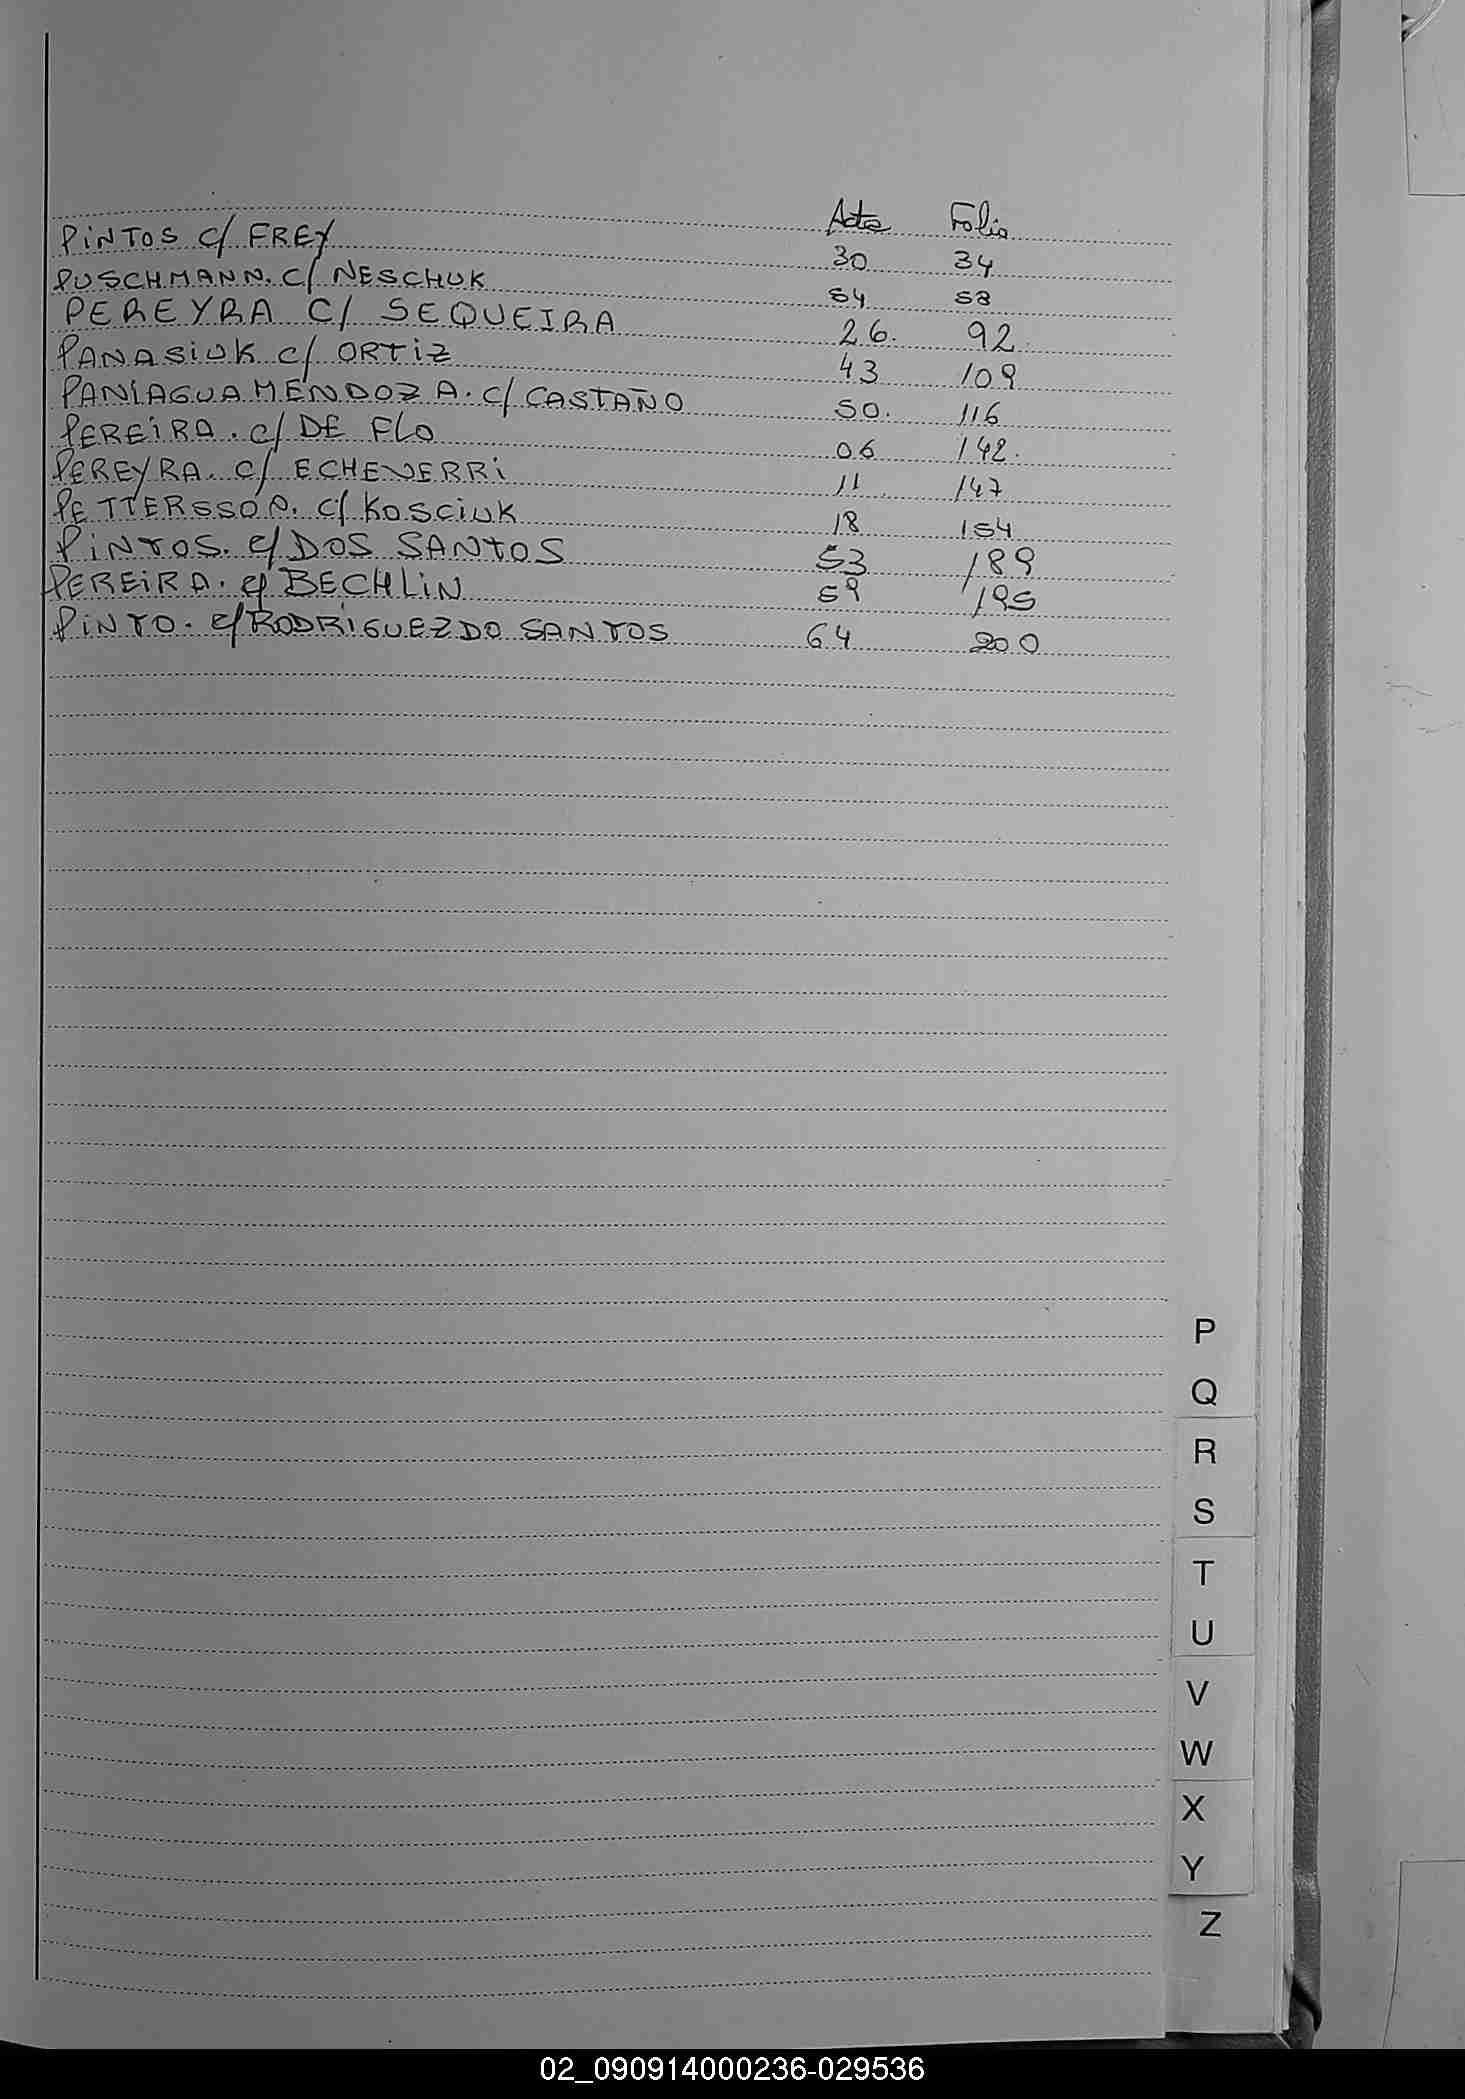 Acta Folio
PiNTOS c/ FREY 30 34
PUSCHMANN. c/ NESCHUK 54 58
PEREYRA C/ SEQUEIRA 26. 92.
PANASIUK c/ ORTIZ 43 109
PANIAGUA MENDOZA. c/ CASTAÑO 50. 116
PEREIRA. c/ DE FLO 06 142.
PEREYRA. c/ ECHEVERRi 11 147
PETTERSSON. c/ KOSCIUK 18 154
PiNTOS. c/ DOS SANTOS 53 189
PEREIRA. c/ BECHLIN 59 195
PiNTO. c/ RODRIGUEZ DO SANTOS 64 200
P
Q
R
S
T
U
V
W
X
Y
Z
02_090914000236-029536